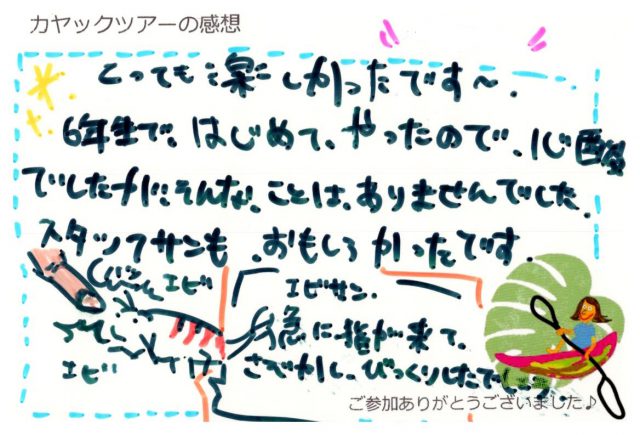 カヤックツアーの感想
とっても楽しかったです～.
6年生で、はじめて、やったので、心
でしたが、そんな、ことは、ありませんでした.
スタッフサンも、おもしろかったです.
エビ
エビサン.
急に指が来て、
エビ
さぞかし、びっくりしたでしょう.
ご参加ありがとうございました♪